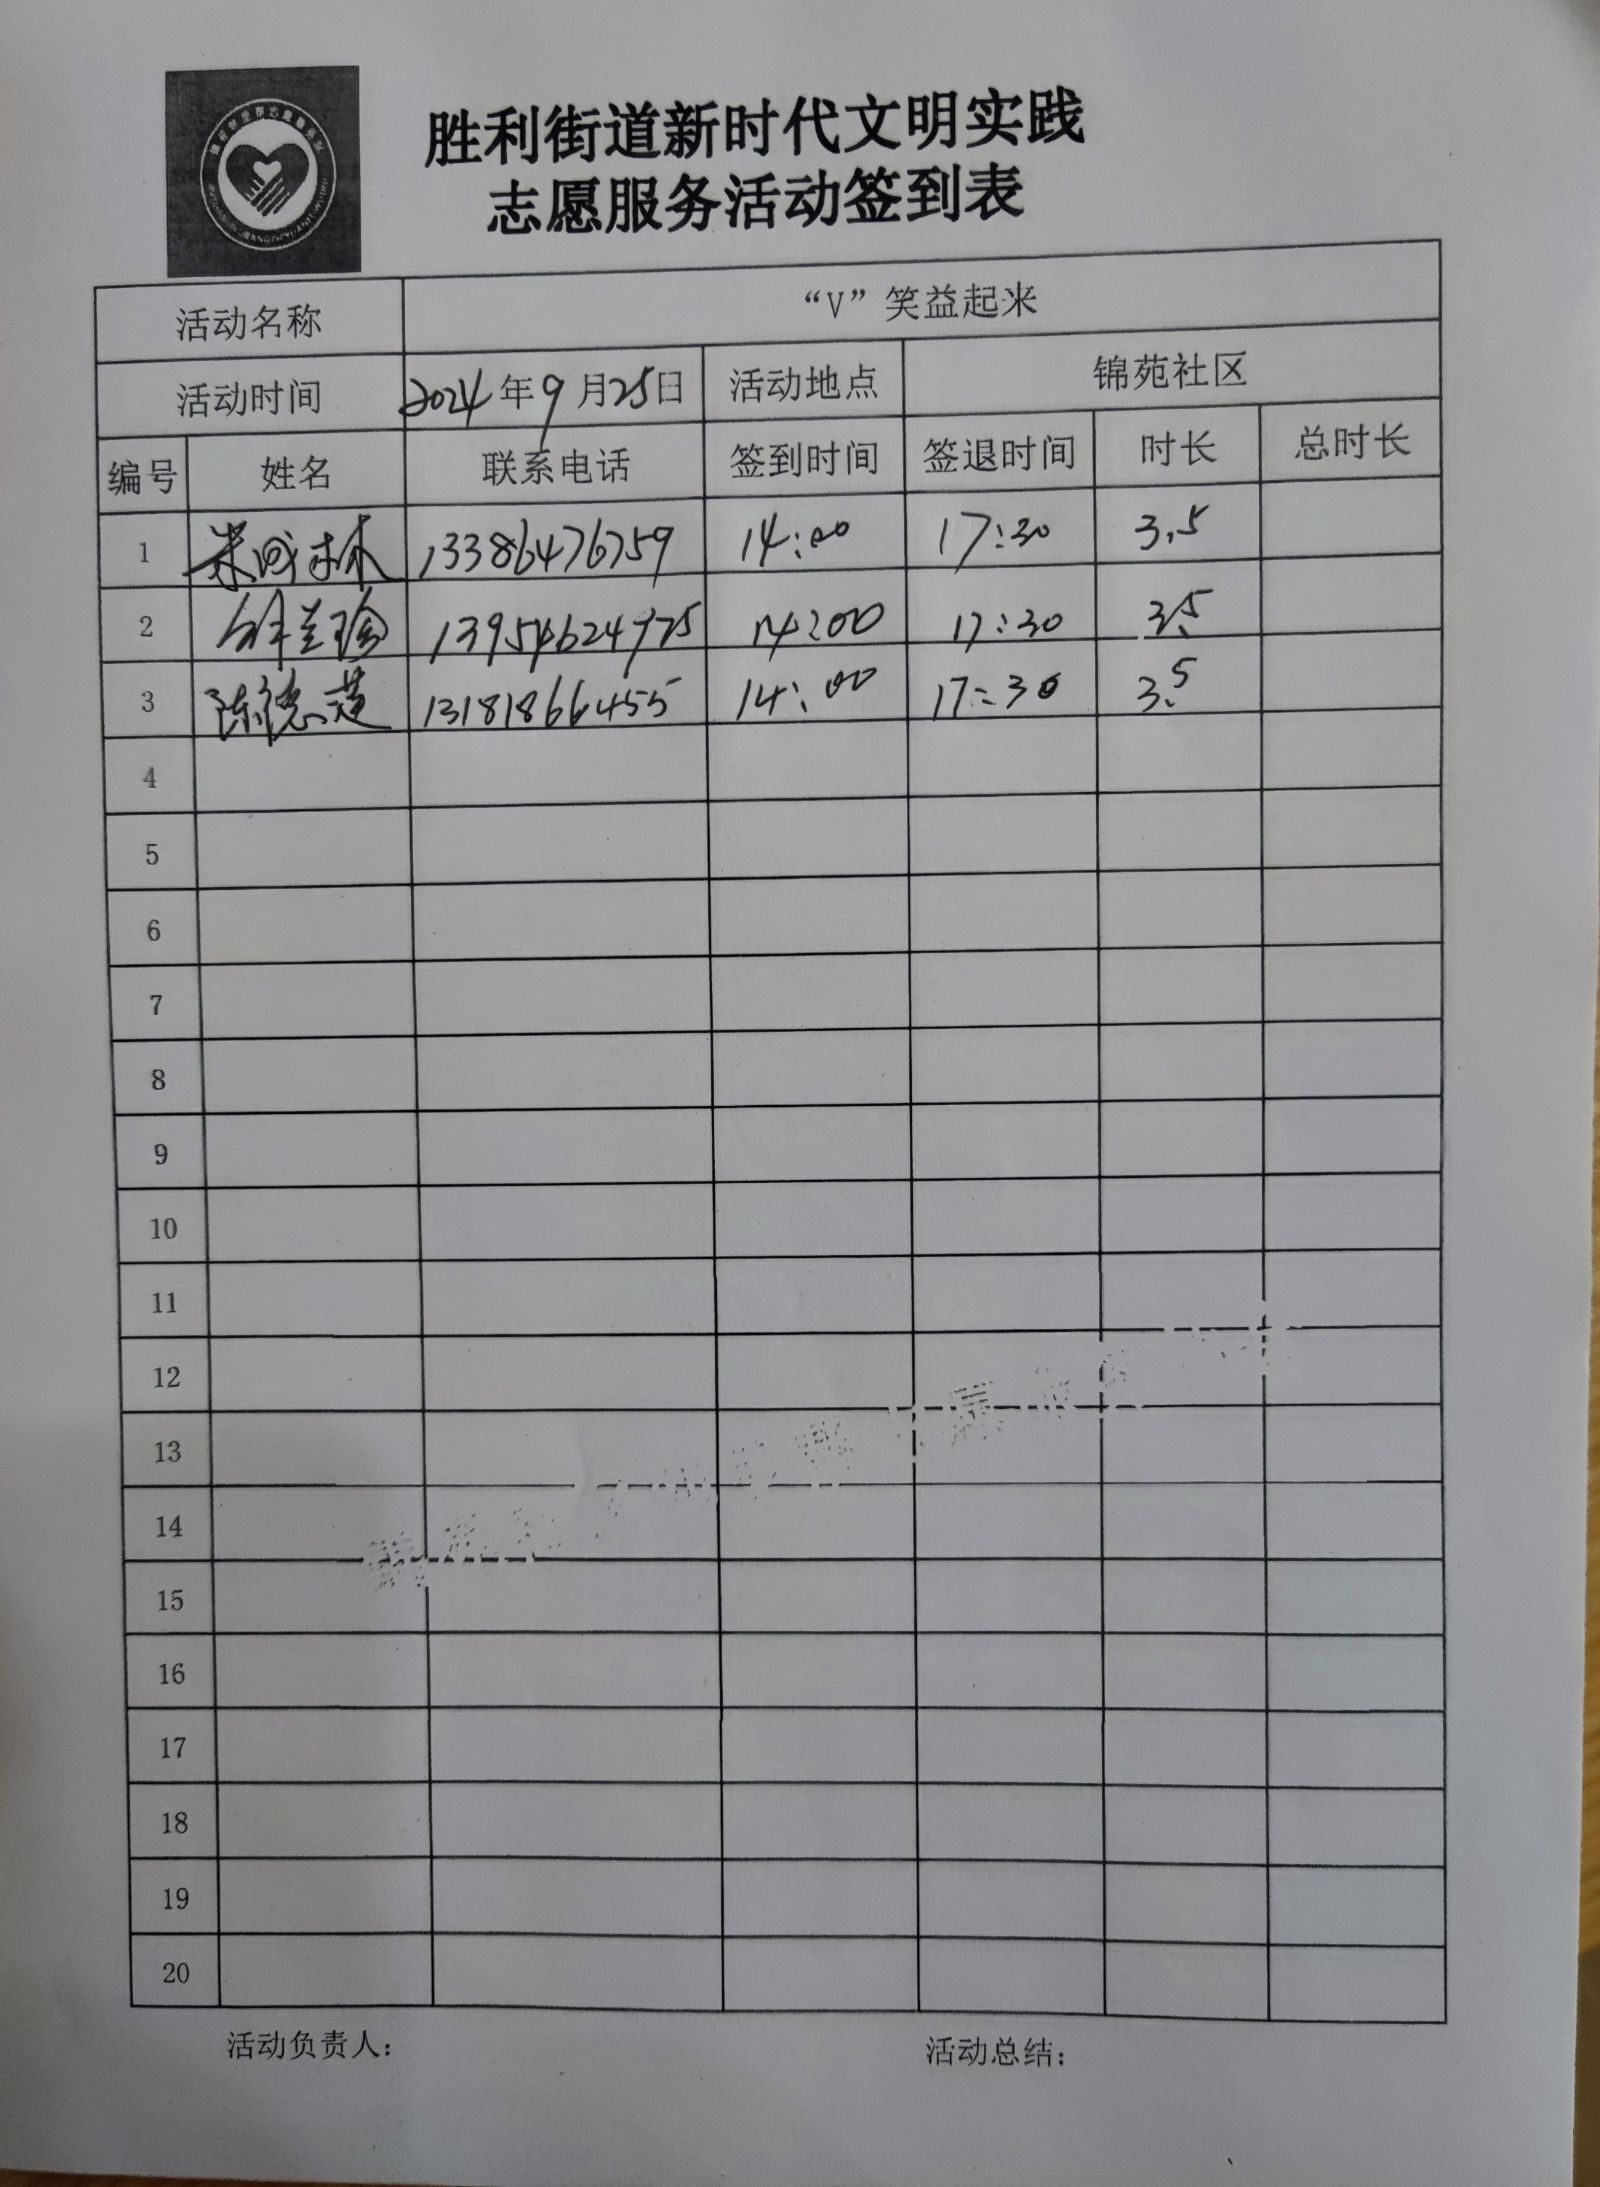 胜利街道新时代文明实践
志愿服务活动签到表
活动名称 “V”笑益起来
活动时间 2024年9月25日 活动地点 锦苑社区
编号 姓名 联系电话 签到时间 签退时间 时长 总时长
1 13386476759 14:00 17:30 3.5
2 兰珍 13954624975 14:00 17:30 3.5
3 陈德莲 13181866455 14:00 17:30 3.5
4
5
6
7
8
9
10
11
12
13
14
15
16
17
18
19
20
活动负责人： 活动总结：